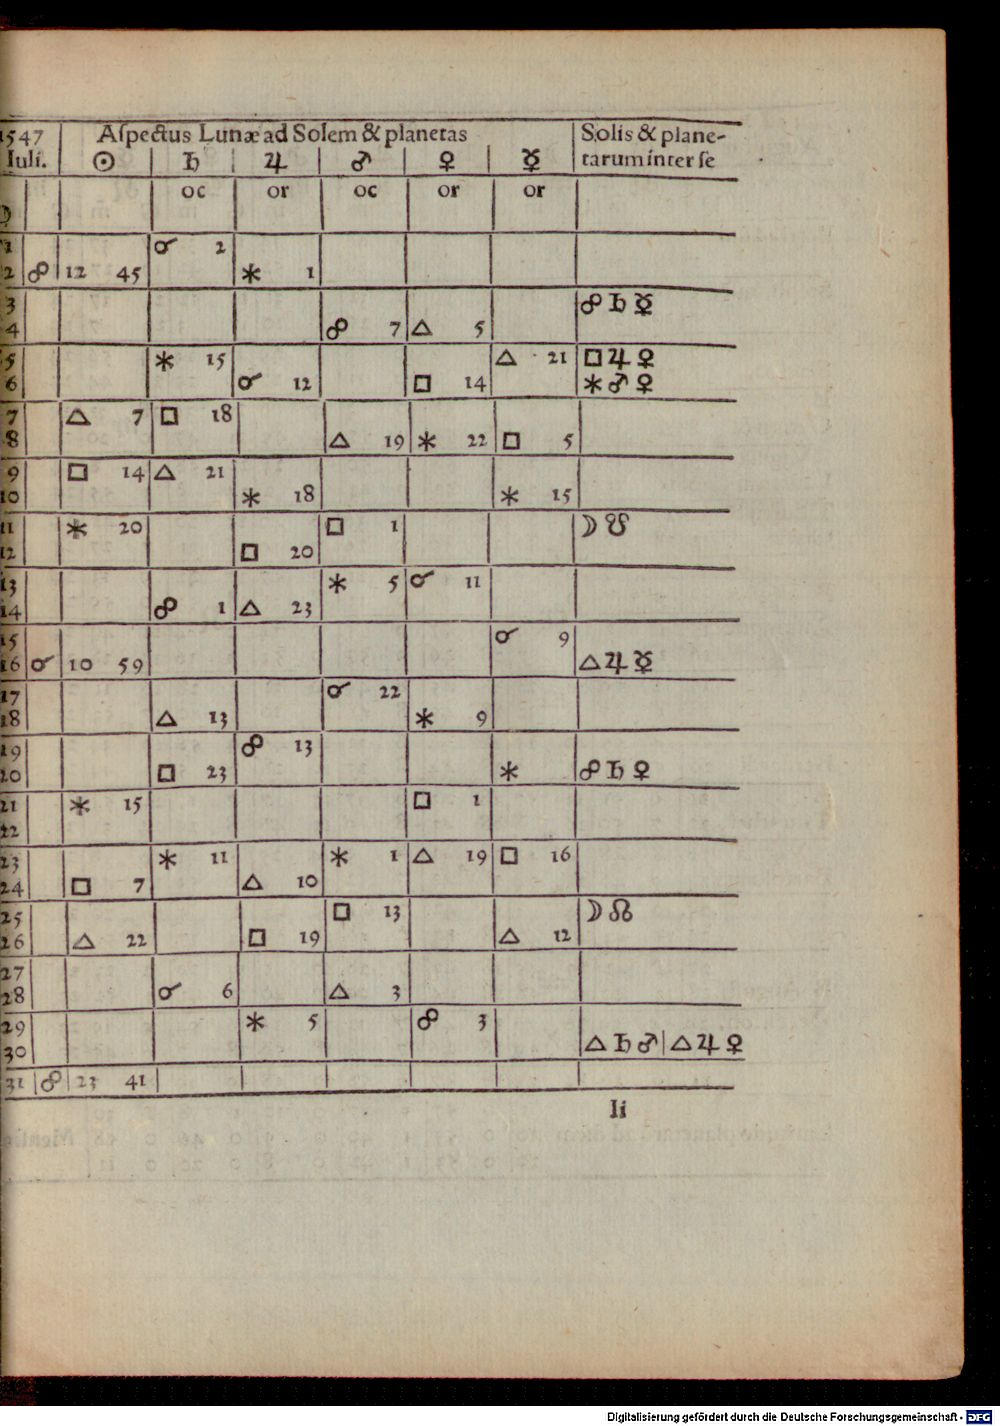 1547 Aſpectus Lunæ ad Solem & planetas Solis & plane-
Iuli. ☉ ♄ ♃ ♂ ♀ ☿ tarum inter ſe
☽ oc or oc or or
1 ☌ 2
2 ☍ 12 45 ⚹ 1
3 ☍ ♄ ☿
4 ☍ 7 △ 5
5 ⚹ 15 △ 21 □ ♃ ♀
6 ☌ 12 □ 14 ⚹ ♂ ♀
7 △ 7 □ 18
8 △ 19 ⚹ 22 □ 5
9 □ 14 △ 21
10 ⚹ 18 ⚹ 15
11 ⚹ 20 □ 1 ☽ ☋
12 □ 20
13 ⚹ 5 ☌ 11
14 ☍ 1 △ 23
15 ☌ 9
16 ☌ 10 59 △ ♃ ☿
17 ☌ 22
18 △ 13 ⚹ 9
19 ☍ 13
20 □ 23 ⚹ ☍ ♄ ♀
21 ⚹ 15 □ 1
22
23 ⚹ 11 ⚹ 1 △ 19 □ 16
24 □ 7 △ 10
25 □ 13 ☽ ☊
26 △ 22 □ 19 △ 12
27
28 ☌ 6 △ 3
29 ⚹ 5 ☍ 3
30 △ ♄ ♂ | △ ♃ ♀
31 ☍ 23 41
Ii
Digitalisierung gefördert durch die Deutsche Forschungsgemeinschaft - DFG